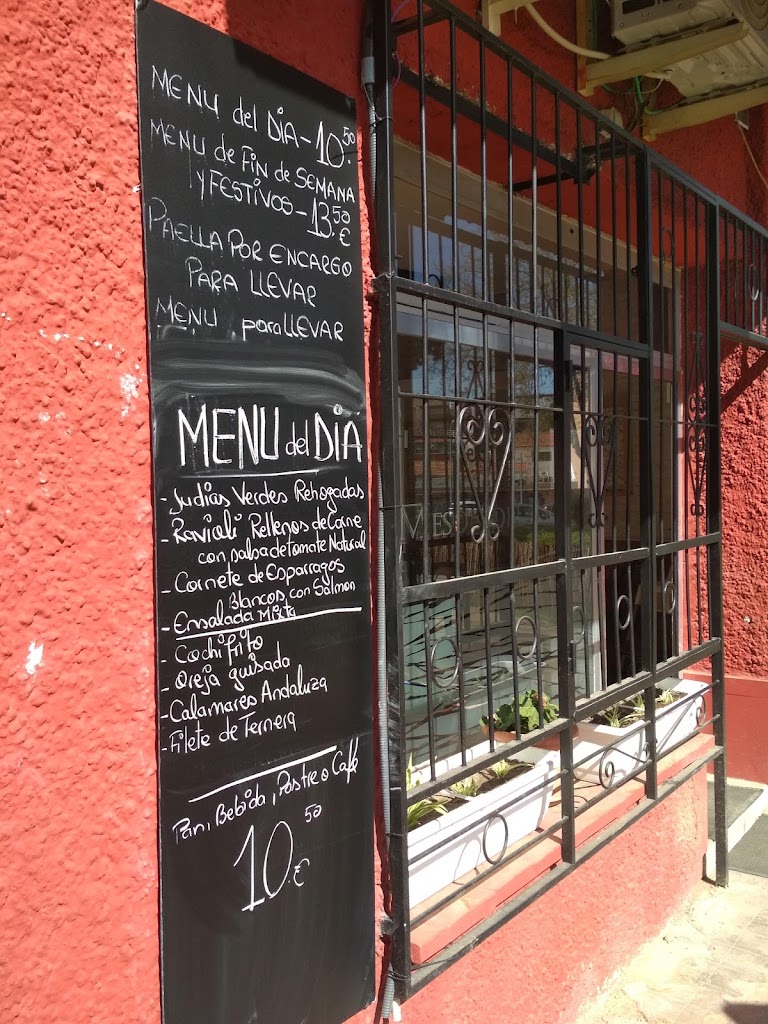 MENU del DiA - 10.50
MENU de FiN de SEMANA
y FESTiVOS - 13.50 €
PAELLA POR ENCARGO
PARA LLEVAR
MENU para LLEVAR
MENU del DiA
- Judias Verdes Rehogadas
- Ravioli Rellenos de Carne
con salsa de tomate Natural
- Cornete de Esparragos
Blancos con Salmon
- Ensalada Mixta
- Cochifrito
- Oreja guisada
- Calamares Andaluza
- Filete de Ternera
Pan, Bebida, Postre o Café
10.50 €